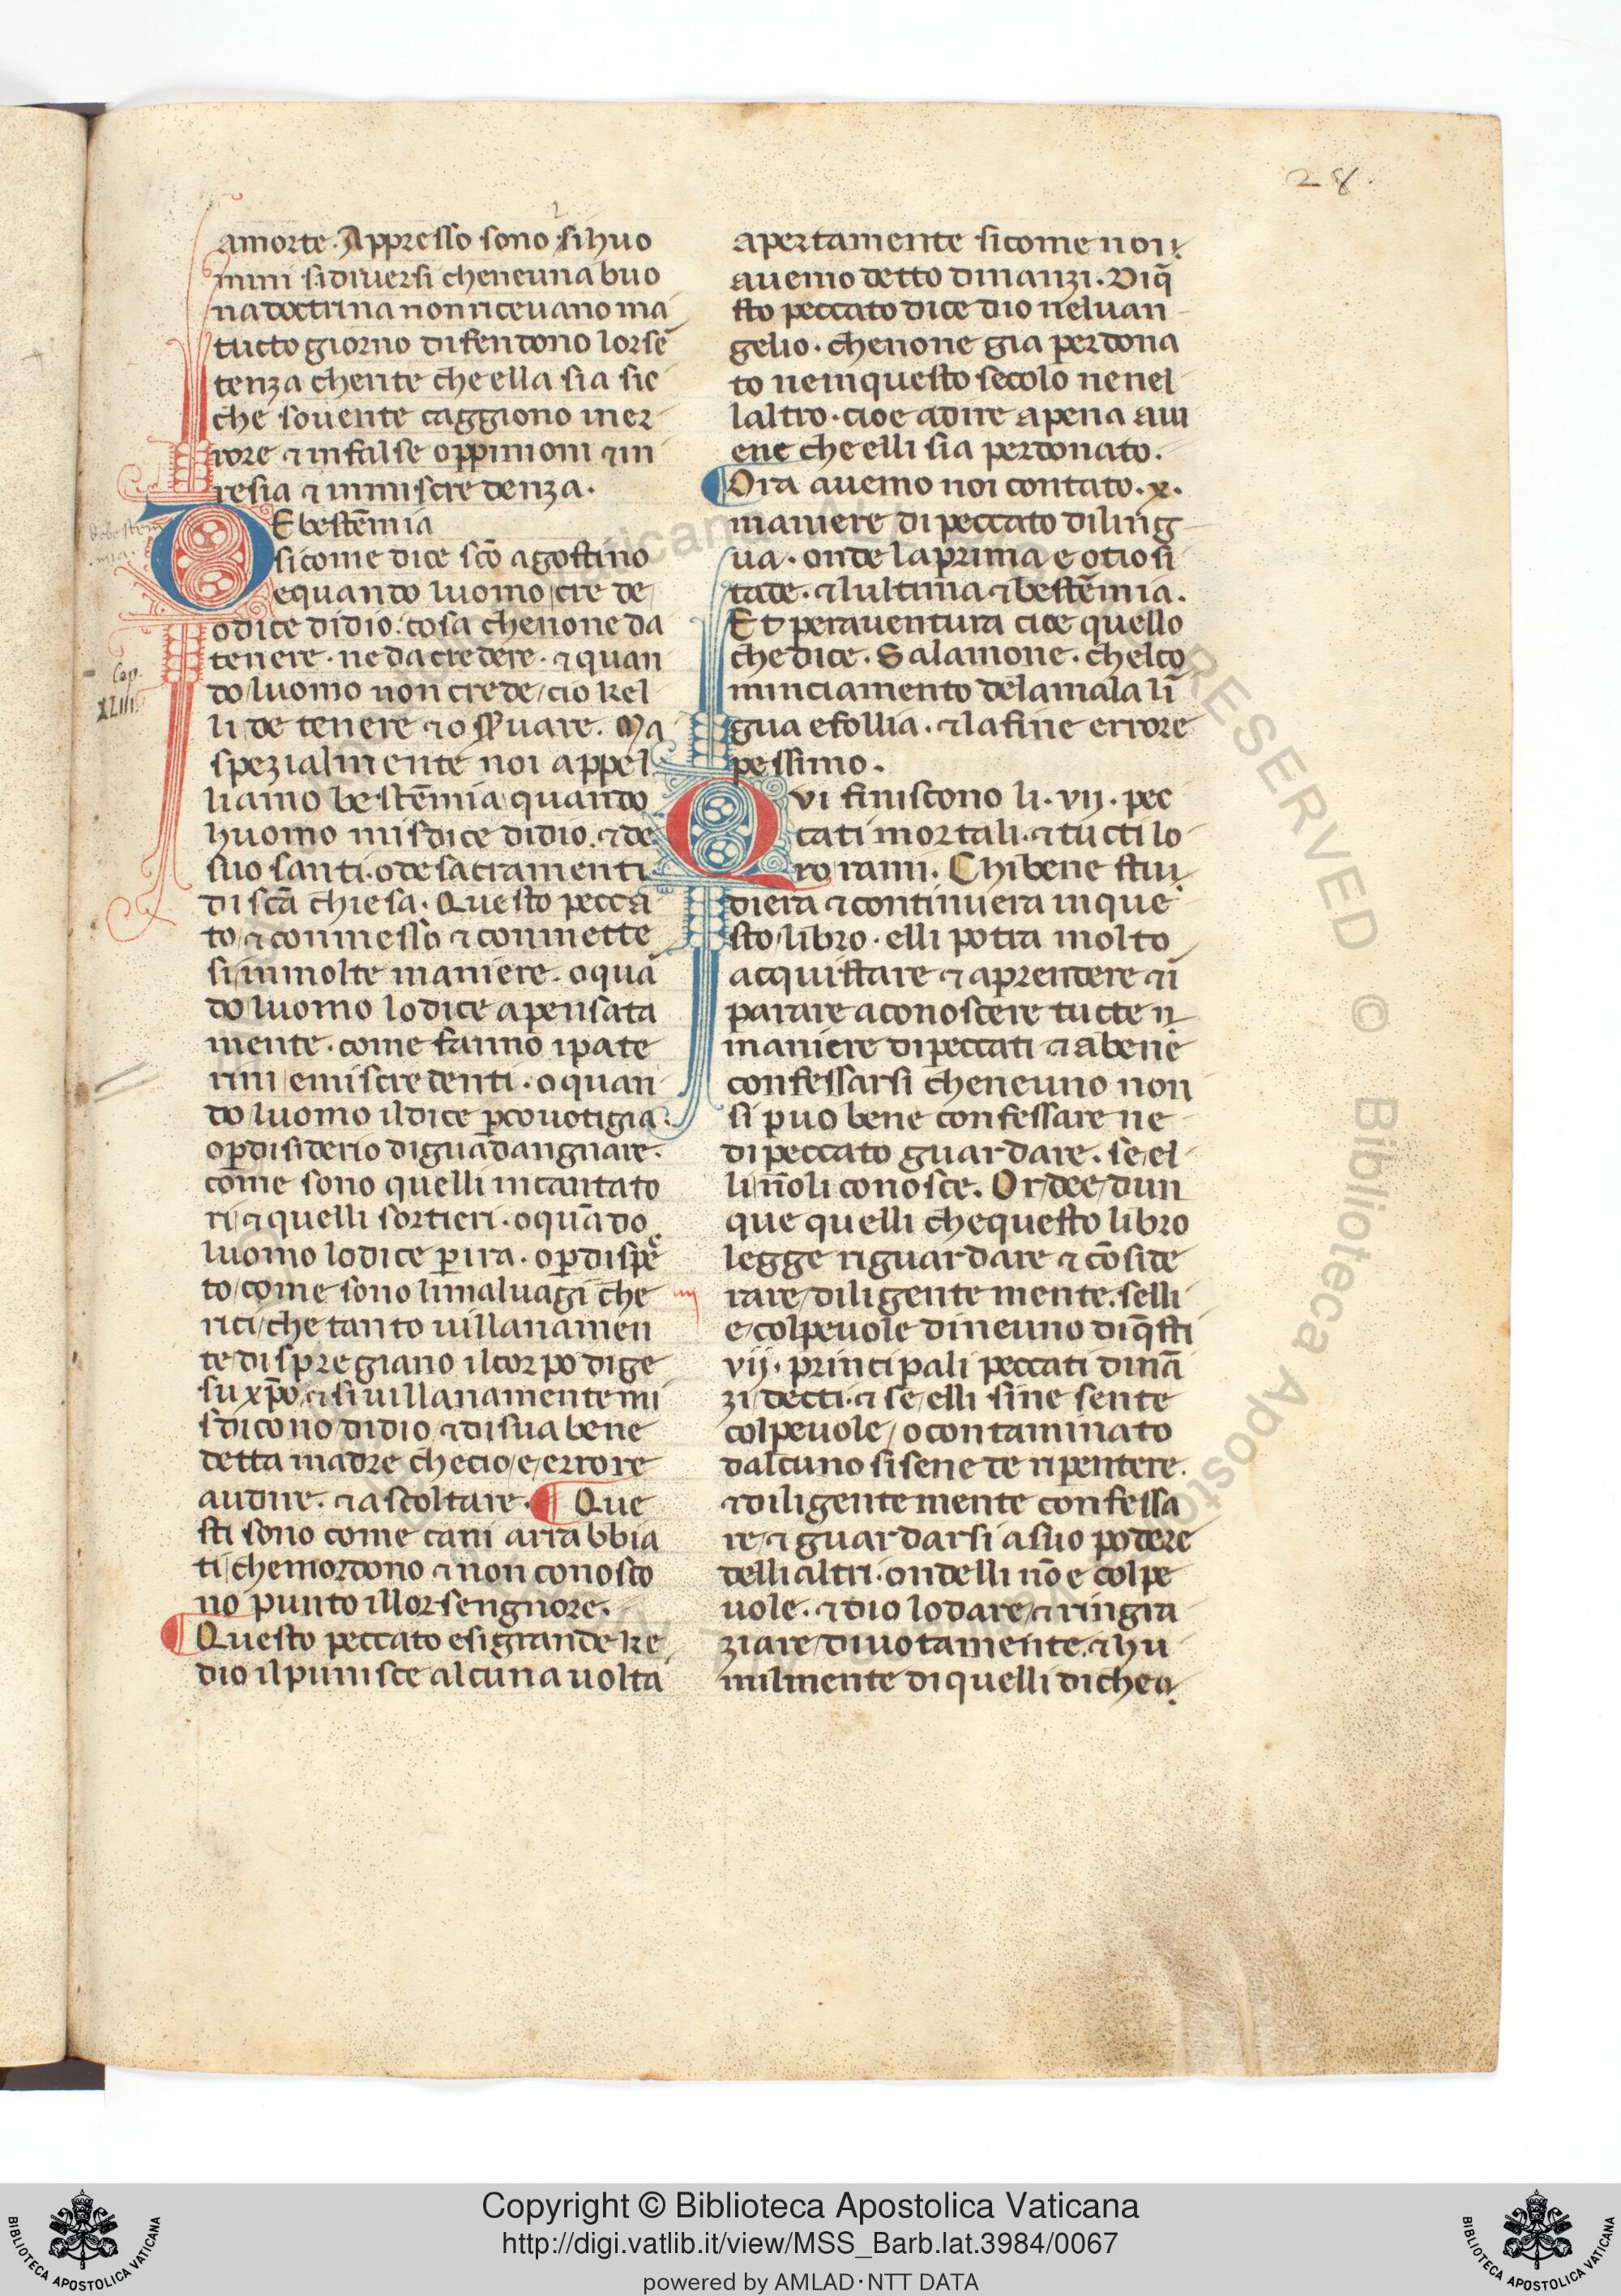 28.
amorte. Appresso sono si huo
mini sidiuersi cheneuna buo
na doctrina non riceuano ma
tutto giorno difendono lor sē
tenza chente che ella sia sic
che souente caggiono in er
rore ⁊ infalse oppinioni ⁊ in
resia ⁊ inmiscredenza.
DE bestēmia
si come dice scō agostino
equando luomo crede
odice didio. cosa chenone da
tenere. ne da credere. ⁊ quan
Cap.
XLIII
do luomo non crede cio kel
li de tenere ⁊ osseruare. Ma
spezialmente noi appel
liamo bestēmia quando
huomo misdice didio. ⁊ de
suo santi. o de sacramenti
di scā chiesa. Questo pecca
to ⁊ conmesso ⁊ conmette
si inmolte maniere. o quā
do luomo lo dice apensata
mente. come fanno i pate
rini emiscredenti. o quan
do luomo il dice ꝑ couotigia.
o ꝑ disiderio diguadangnare.
come sono quelli incantato
ri ⁊ quelli sortieri. o quādo
luomo lodice ꝑ ira. o ꝑ dispe
to come sono li maluagi che
rici che tanto uillanamen
te dispregiano il corpo dige
su xp̄o ⁊ si uillanamente mi
sdicono didio ⁊ di sua bene
detta madre che cio e errore
audire. ⁊ ascoltare. ¶ Que
sti sono come cani arrabbia
ti che mordono ⁊ non conosco
no punto il lor sengnore.
¶ Questo peccato e si grande ke
dio il punisce alcuna uolta
apertamente sicome noi
auemo detto dinanzi. Di q̄
sto peccato dice dio neluan
gelio. chenone gia perdona
to ne inquesto secolo ne nel
laltro. cioe adire apena aui
ene che elli sia perdonato.
¶ Ora auemo noi contato. x.
maniere di peccato di ling
ua. onde la prima e otiosi
tade. ⁊ lultima ⁊ bestēmia.
Et perauentura cioe quello
che dice. Salamone. chelco
minciamento dela mala lī
gua e follia. ⁊ la fine errore
pessimo.
QVi finiscono li. vij. pec
cati mortali. ⁊ tucti lo
ro rami. Chi bene stu
diera ⁊ continuera in que
sto libro. elli potra molto
acquistare ⁊ aprendere ⁊ ī
parare aconoscere tucte
maniere di peccati ⁊ abene
confessarsi cheneuno non
si puo bene confessare ne
di peccato guardare. se el
li nōli conosce. Or dee dun
que quelli che questo libro
legge riguardare ⁊ cōside
rare diligente mente. selli
e colpeuole dineuno di q̄sti
vij. principali peccati dinā
zi decti. ⁊ se elli sine sente
colpeuole o contaminato
dalcuno si sene de ripentere.
⁊ diligente mente confessa
re ⁊ guardarsi a suo podere
delli altri. ondelli nō e colpe
uole. ⁊ dio lodare ⁊ ringra
ziare diuotamente. ⁊ hu
milmente di quelli di che
Copyright © Biblioteca Apostolica Vaticana
http://digi.vatlib.it/view/MSS_Barb.lat.3984/0067
powered by AMLAD·NTT DATA
BIBLIOTECA APOSTOLICA VATICANA
BIBLIOTECA APOSTOLICA VATICANA